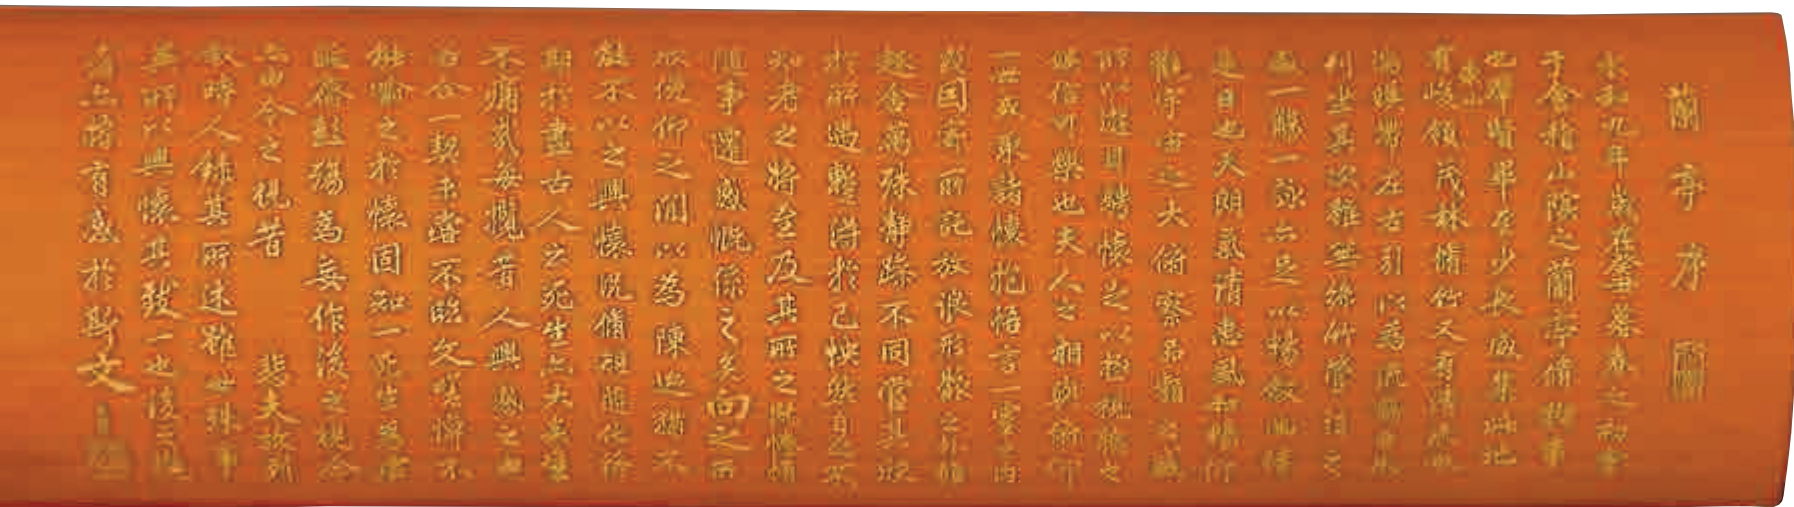 蘭亭序
永和九年歲在癸丑暮春之初會
于會稽山陰之蘭亭脩稧事
也群賢畢至少長咸集此地
有崇山峻領茂林脩竹又有清流激
湍暎帶左右引以為流觴曲水
列坐其次雖無絲竹管弦之
盛一觴一詠亦足以暢敘幽情
是日也天朗氣清惠風和暢仰
觀宇宙之大俯察品類之盛
所以遊目騁懷足以極視聽之
娛信可樂也夫人之相與俯仰
一世或取諸懷抱悟言一室之內
或因寄所託放浪形骸之外雖
趣舍萬殊靜躁不同當其欣
於所遇蹔得於己怏然自足不
知老之將至及其所之既惓情
隨事遷感慨係之矣向之所
欣俛仰之閒以為陳迹猶不
能不以之興懷況脩短隨化終
期於盡古人云死生亦大矣豈
不痛哉每攬昔人興感之由
若合一契未嘗不臨文嗟悼不
能喻之於懷固知一死生為虛
誕齊彭殤為妄作後之視今
亦由今之視昔 悲夫故列
敘時人錄其所述雖世殊事
異所以興懷其致一也後之攬
者亦將有感於斯文